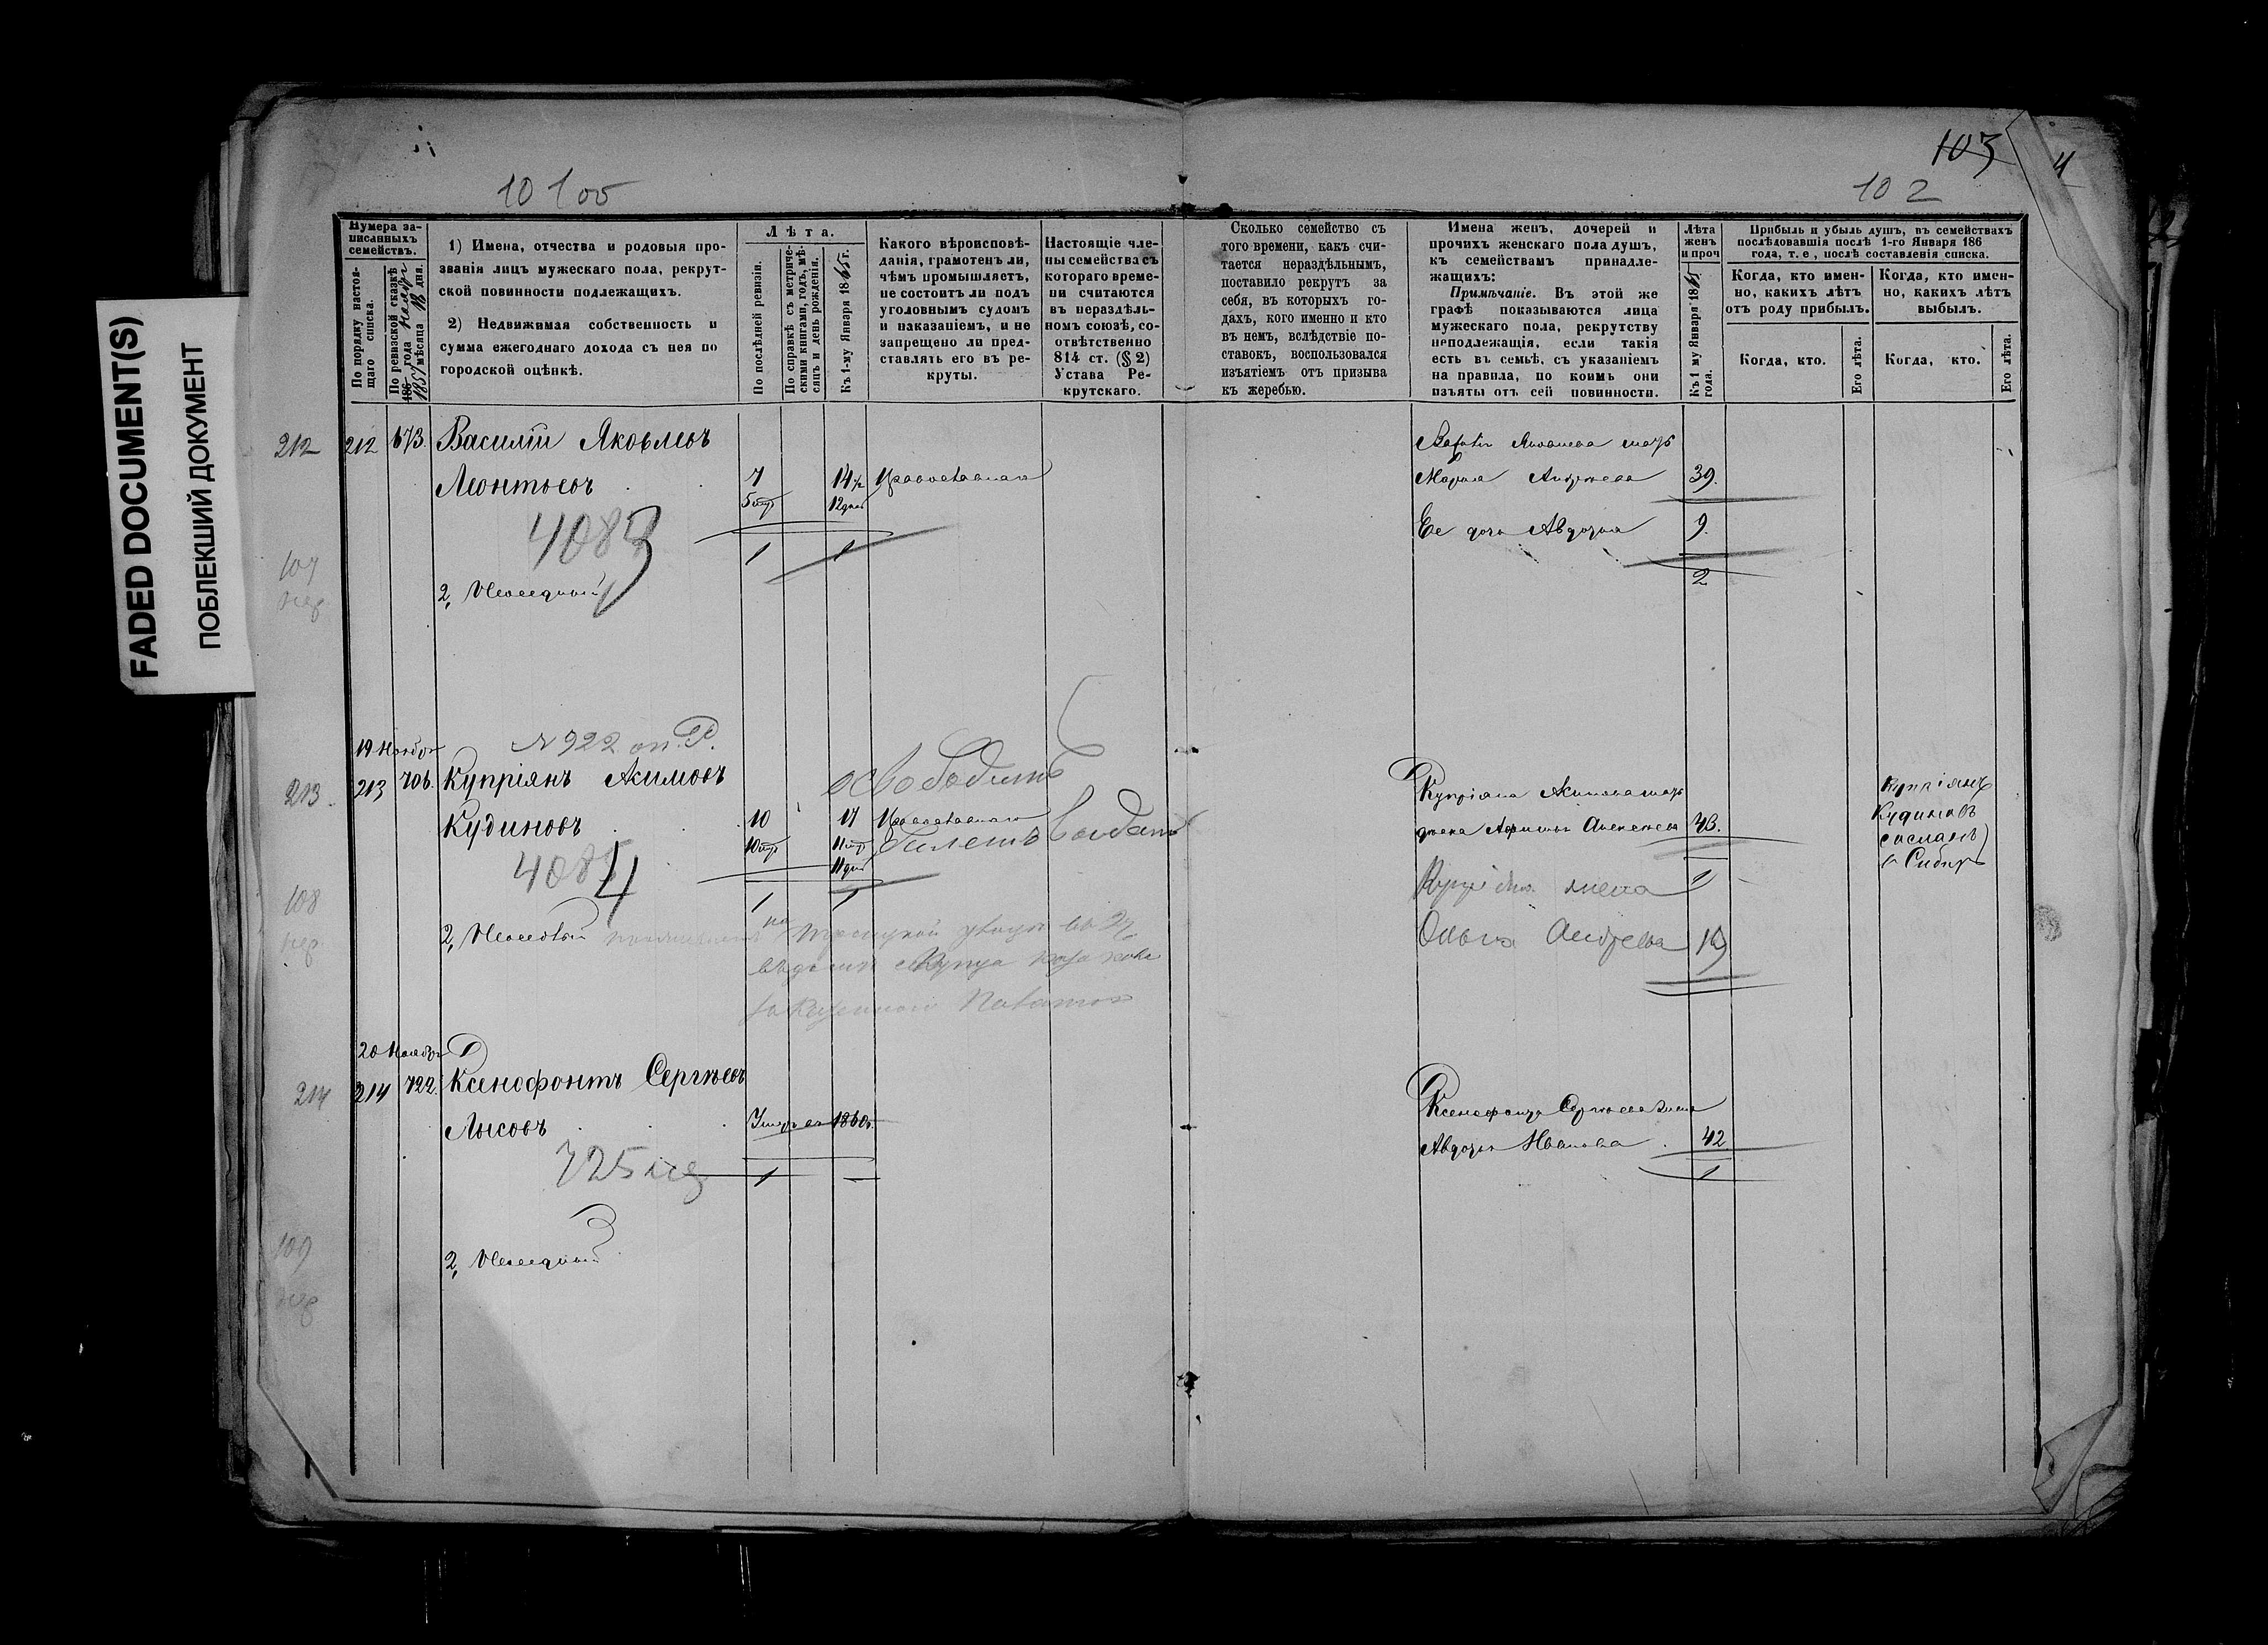 FADED DOCUMENT(S)
ПОБЛЕКШИЙ ДОКУМЕНТ
10 100
103
102
4
Нумера за-
писанныхъ
семействъ.
По порядку настоя-
щаго списка.
По ревизской сказкѣ
186 года
1857 мѣсяца 18 дня.
1) Имена, отчества и родовыя про-
званія лицъ мужескаго пола, рекрут-
ской повинности подлежащихъ.
2) Недвижимая собственность и
сумма ежегоднаго дохода съ нея по
городской оцѣнкѣ.
Лѣта.
По послѣдней ревизіи.
По справкѣ съ метриче-
скими книгами, годъ, мѣ-
сяцъ и день рожденія.
Къ 1-му Января 1865 г.
Какого вѣроисповѣ-
данія, грамотенъ ли,
чѣмъ промышляетъ,
не состоитъ ли подъ
уголовнымъ судомъ
и наказаніемъ, и не
запрещено ли пред-
ставлять его въ ре-
круты.
Настоящіе чле-
ны семейства съ
котораго време-
ни считаются
въ нераздѣль-
номъ союзѣ, со-
отвѣтственно
814 ст. (§ 2)
Устава Ре-
крутскаго.
Сколько семейство съ
того времени, какъ счи-
тается нераздѣльнымъ,
поставило рекрутъ за
себя, въ которыхъ го-
дахъ, кого именно и кто
въ немъ, вслѣдствіе по-
ставокъ, воспользовался
изъятіемъ отъ призыва
къ жеребью.
Имена женъ, дочерей и
прочихъ женскаго пола душъ,
къ семействамъ принадле-
жащихъ:
Примѣчаніе. Въ этой же
графѣ показываются лица
мужескаго пола, рекрутству
неподлежащія, если такія
есть въ семьѣ, съ указаніемъ
на правила, по коимъ они
изъяты отъ сей повинности.
Лѣта
женъ
и проч
Къ 1 му Января 1865
года.
Прибыль и убыль душъ, въ семействахъ
послѣдовавшія послѣ 1-го Января 186
года, т. е, послѣ составленія списка.
Когда, кто имен-
но, какихъ лѣтъ
отъ роду прибылъ.
Когда, кто имен-
но, какихъ лѣтъ
выбылъ.
Когда, кто.
Его лѣта.
Когда, кто.
Его лѣта.
212 212 673. Василій Яковлевъ
Леонтьевъ 7 14 Православнаго
12 дней
4083
1 1
107
2,
Яковлева мать
Марья Андреева 39.
Ее дочь Авдотья 9.
2
19 Ноября
№ 922
213. 213 706. Купріянъ Акимовъ
освободить
Кудиновъ 10 17 Православнаго
билетъ
11 дней
4084
1 1
108
2,
Купріяна Акимова мать
Алексеева 43.
Купріяна жена 1
Ольга Андреева 19
Купріянъ
Кудиновъ
сосланъ
въ Сибирь
20 Ноября
214 214 722. Ксенофонтъ Сергѣевъ
Лысовъ Умеръ въ 1860 г.
725
1 —
109
2,
Ксенофонта Сергѣева жена
Авдотья Иванова 42
1